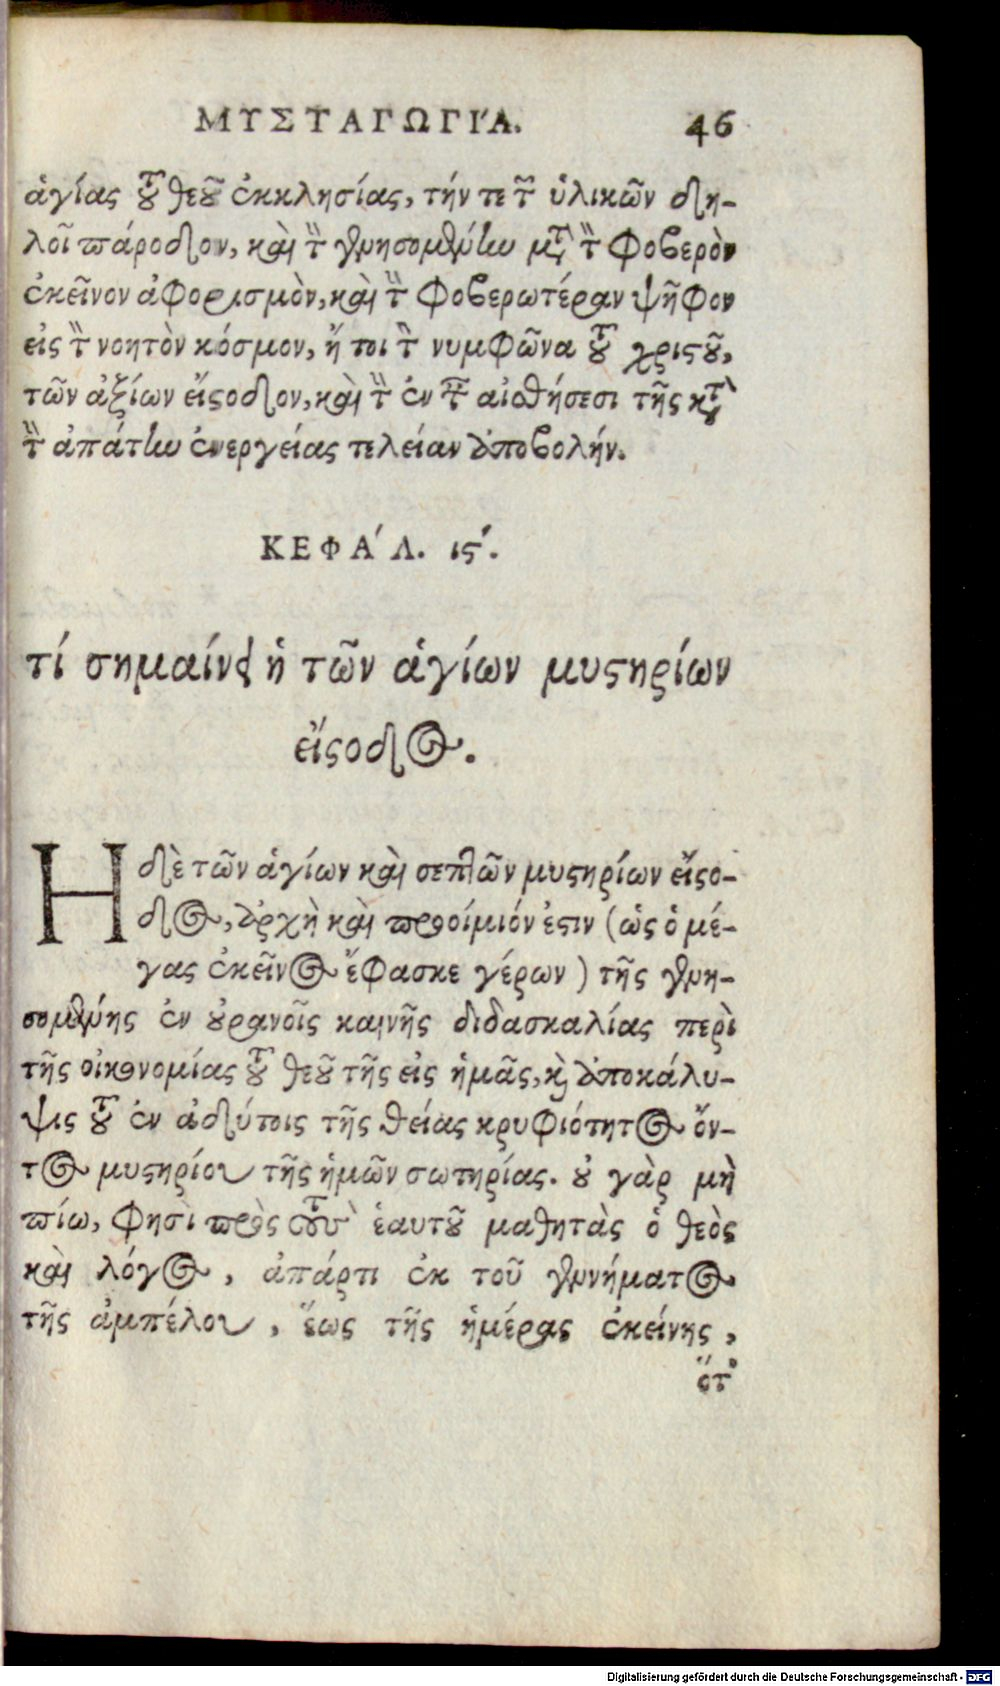 ΜΥΣΤΑΓΩΓΙΑ. 46
ἁγίας τοῦ θεοῦ ἐκκλησίας, τήν τε τῶν ὑλικῶν δη-
λοῖ πάροδον, καὶ τὴν γενησομένην μετὰ τὸν φοβερὸν
ἐκεῖνον ἀφορισμὸν, καὶ τὴν φοβερωτέραν ψῆφον
εἰς τὸν νοητὸν κόσμον, ἤ τοι τὸν νυμφῶνα τοῦ χριστοῦ,
τῶν ἀξίων εἴσοδον, καὶ τὴν ἐν ταῖς αἰσθήσεσι τῆς κατὰ
τὴν ἀπάτην ἐνεργείας τελείαν ἀποβολήν.
ΚΕΦΑΛ. ις΄.
τί σημαίνει ἡ τῶν ἁγίων μυστηρίων
εἴσοδος.
Η δὲ τῶν ἁγίων καὶ σεπτῶν μυστηρίων εἴσο-
δος, ἀρχὴ καὶ προοίμιόν ἐστιν (ὡς ὁ μέ-
γας ἐκεῖνος ἔφασκε γέρων) τῆς γενη-
σομένης ἐν οὐρανοῖς καινῆς διδασκαλίας περὶ
τῆς οἰκονομίας τοῦ θεοῦ τῆς εἰς ἡμᾶς, καὶ ἀποκάλυ-
ψις τοῦ ἐν ἀδύτοις τῆς θείας κρυφιότητος ὄν-
τος μυστηρίου τῆς ἡμῶν σωτηρίας. οὐ γὰρ μὴ
πίω, φησὶ πρὸς τοὺς ἑαυτοῦ μαθητὰς ὁ θεὸς
καὶ λόγος, ἀπάρτι ἐκ τοῦ γεννήματος
τῆς ἀμπέλου, ἕως τῆς ἡμέρας ἐκείνης,
ὅτ'
Digitalisierung gefördert durch die Deutsche Forschungsgemeinschaft - DFG